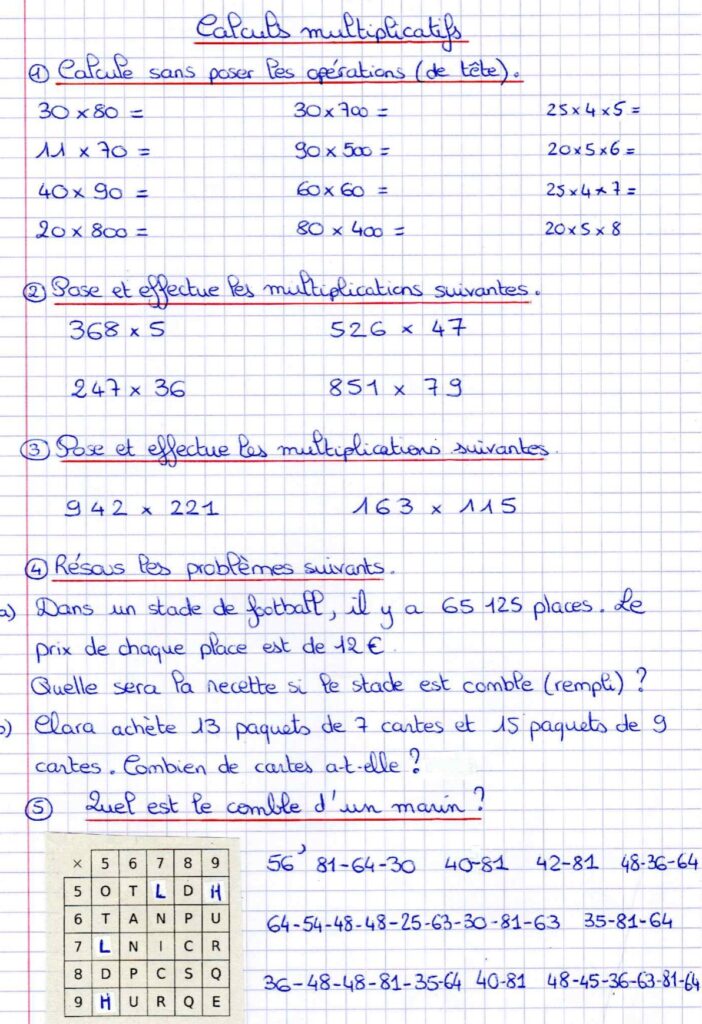 Calculs multiplicatifs
① Calcule sans poser les opérations (de tête).
30 × 80 = 30 × 700 = 25 × 4 × 5 =
11 × 70 = 90 × 500 = 20 × 5 × 6 =
40 × 90 = 60 × 60 = 25 × 4 × 7 =
20 × 800 = 80 × 400 = 20 × 5 × 8
② Pose et effectue les multiplications suivantes.
368 × 5 526 × 47
247 × 36 851 × 79
③ Pose et effectue les multiplications suivantes
942 × 221 163 × 115
④ Résous les problèmes suivants.
a) Dans un stade de football, il y a 65 125 places. Le
prix de chaque place est de 12 €.
Quelle sera la recette si le stade est comble (rempli) ?
b) Clara achète 13 paquets de 7 cartes et 15 paquets de 9
cartes. Combien de cartes a-t-elle ?
⑤ Quel est le comble d'un marin ?
× 5 6 7 8 9
5 O T L D H
6 T A N P U
7 L N I C R
8 D P C S Q
9 H U R Q E
56' 81-64-30 40-81 42-81 48-36-64
64-54-48-48-25-63-30-81-63 35-81-64
36-48-48-81-35-64 40-81 48-45-36-63-81-64